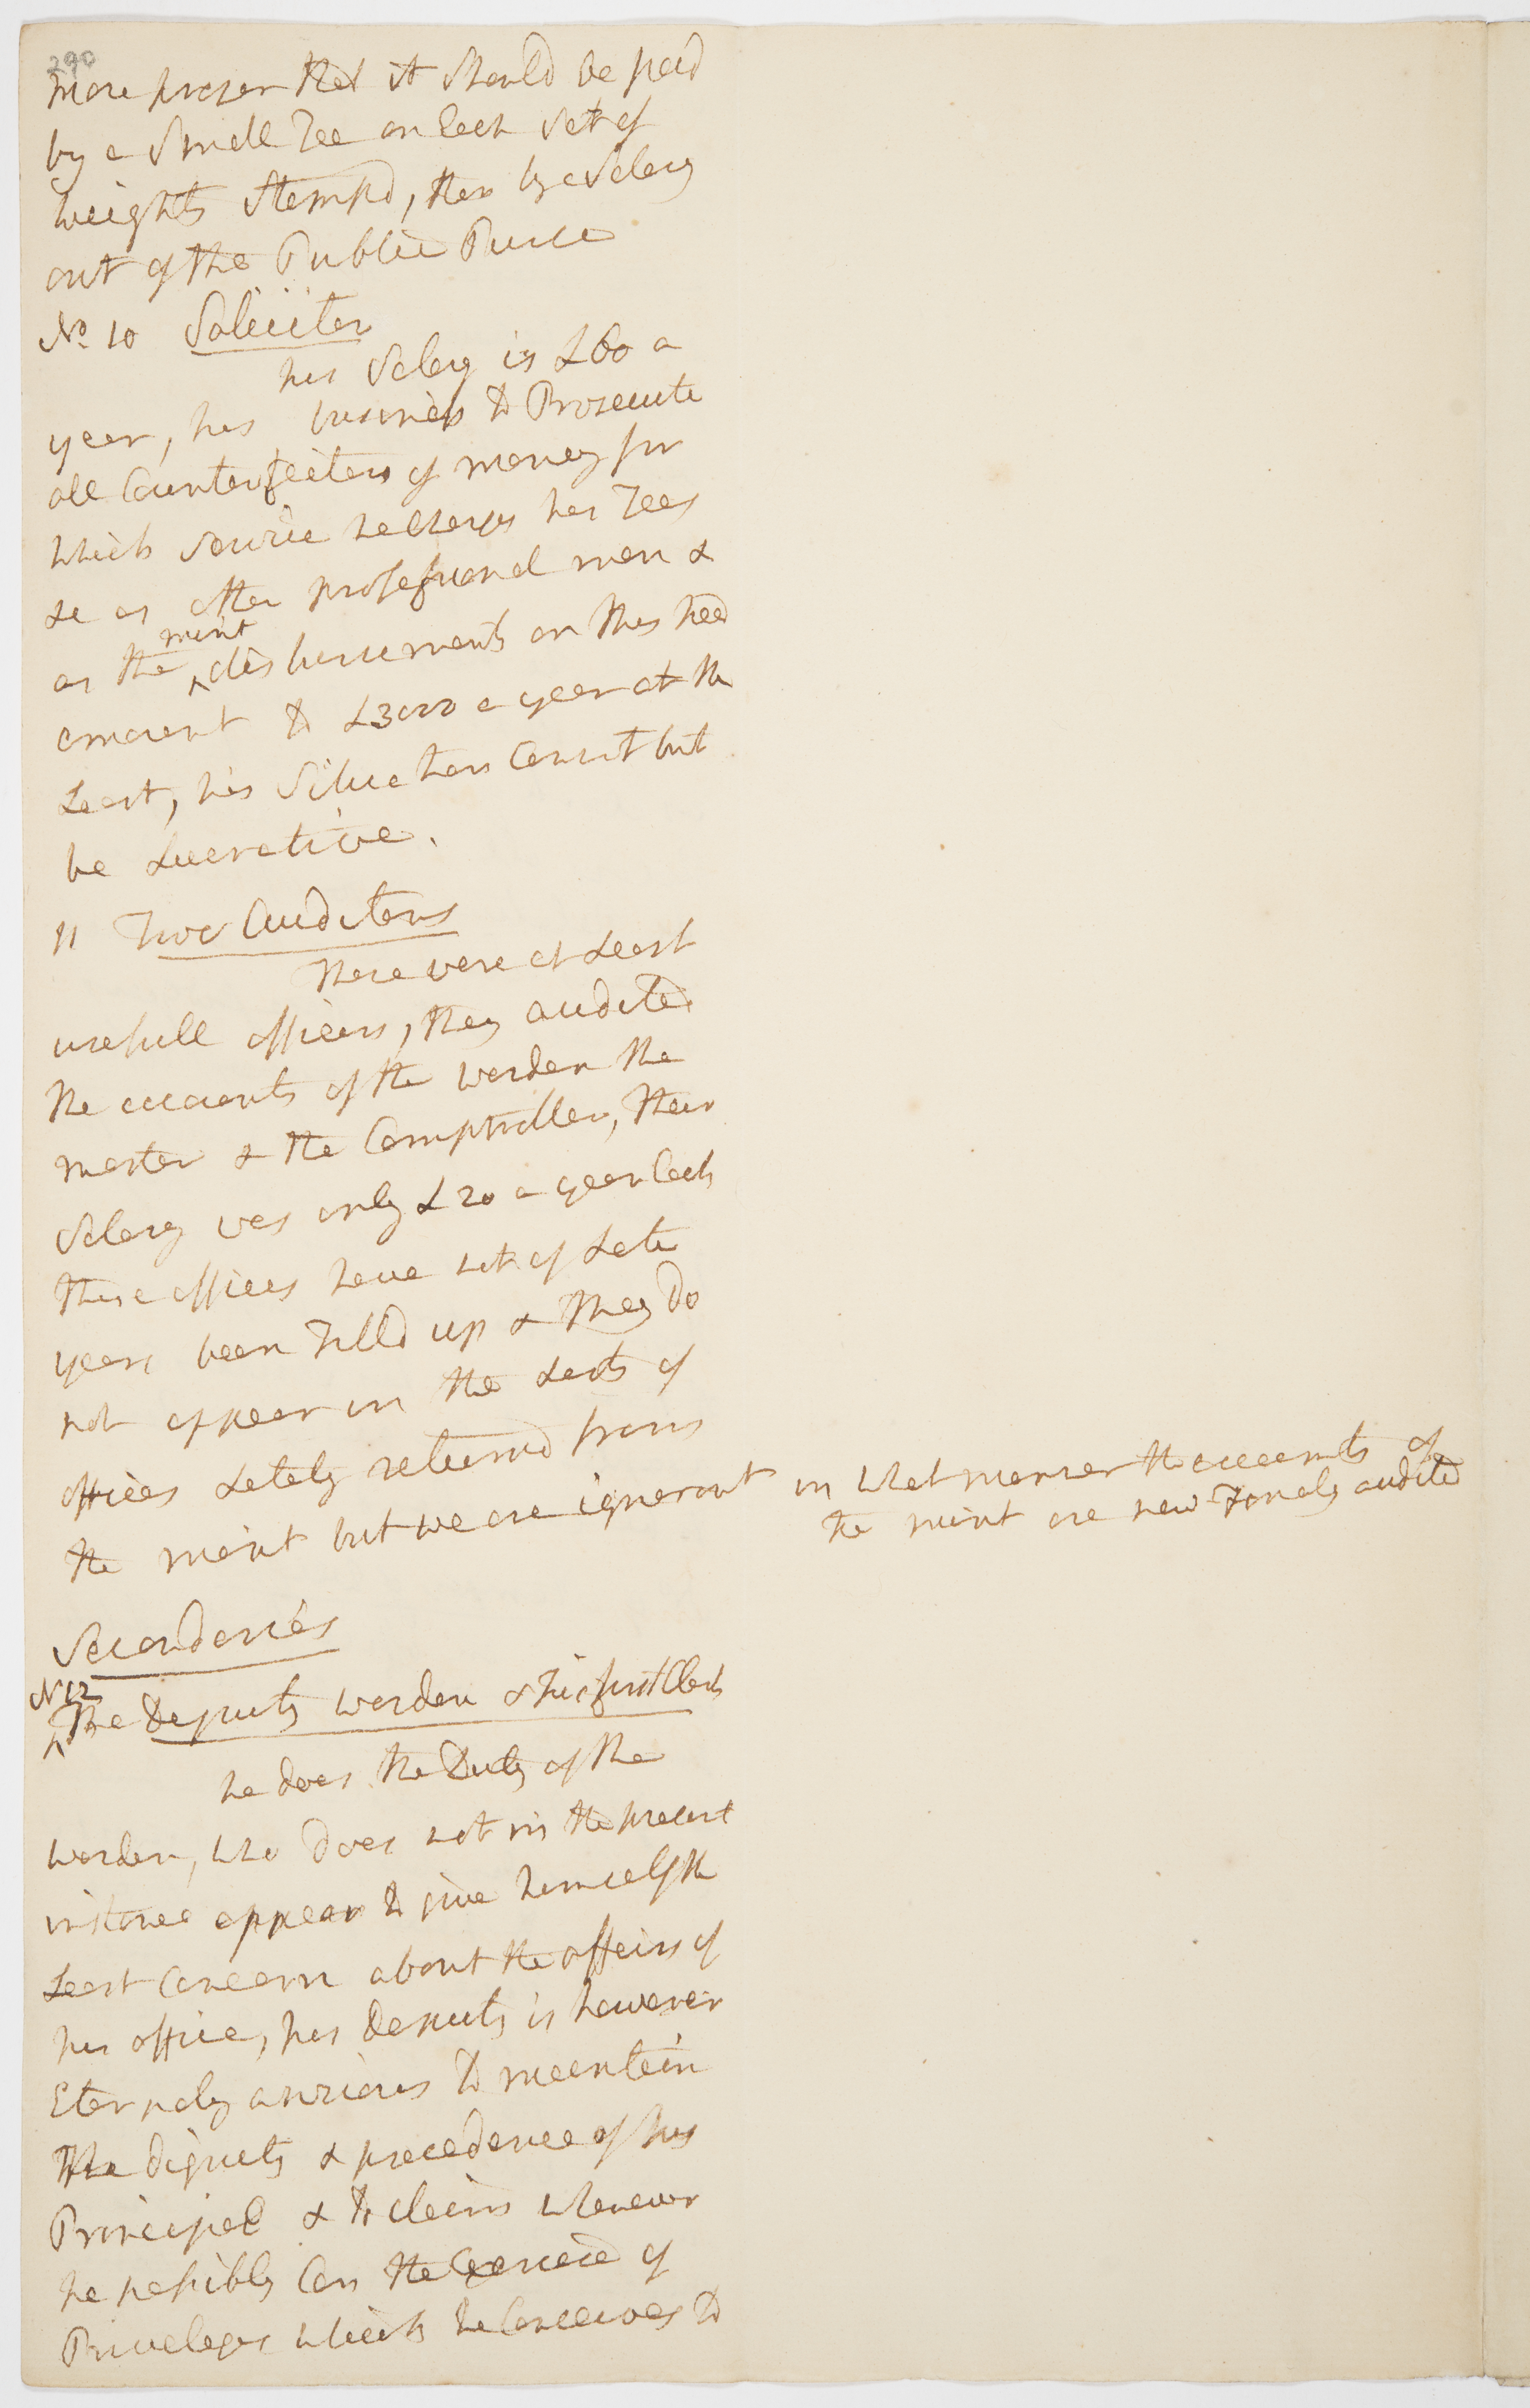 290
more proper that it should be paid
by a Small Fee on Each Set of
weights Stampd, than by a Salary
out of the Public Purse
No. 10 Soliciter
his Salary is £60 a
year, his business to Prosecute
all Counterfeiters of money for
which Service he Charges his Fees
&c as other professional men &
as the mint disbursements on this head
amount to £3000 a year at the
Least, his Situation Cannot but
be Lucrative.
11 Two Auditors
These were at Least
usefull officers, they audited
the accounts of the warden the
master & the Comptroller, their
Salary was only £20 a year Each
these offices have not of Late
years been Filld up & they do
not appear in the Lists of
offices Lately returnd from
the mint but we are ignorant in what manner the accounts of
the mint are now Finaly audited
Secondaries
N 12
The Deputy warden & his first Clerk
he does the Duty of the
warden, who does not in the present
instance appear to give himself the
Least Concern about the affairs of
his office, his Deputy is however
Eternaly anxious to maentain
the dignity & precedence of his
Principal & to claim whenever
he possibly Can the Exercise of
Priveleges which he Conceives to